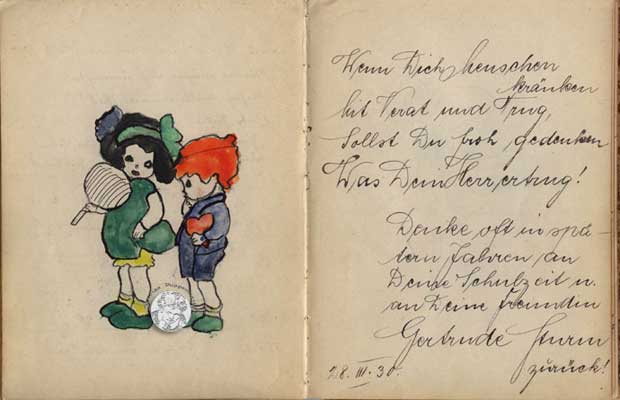 Wenn Dich Menschen
kränken
Mit Verat und Trug,
Sollst Du froh gedenken
Was Dein Herr, ertrug!
Denke oft in spä-
tern Jahren an
Deine Schulzeit u.
an Deine Freundin
Gertrude Sturm
zurück!
28. III. 30.